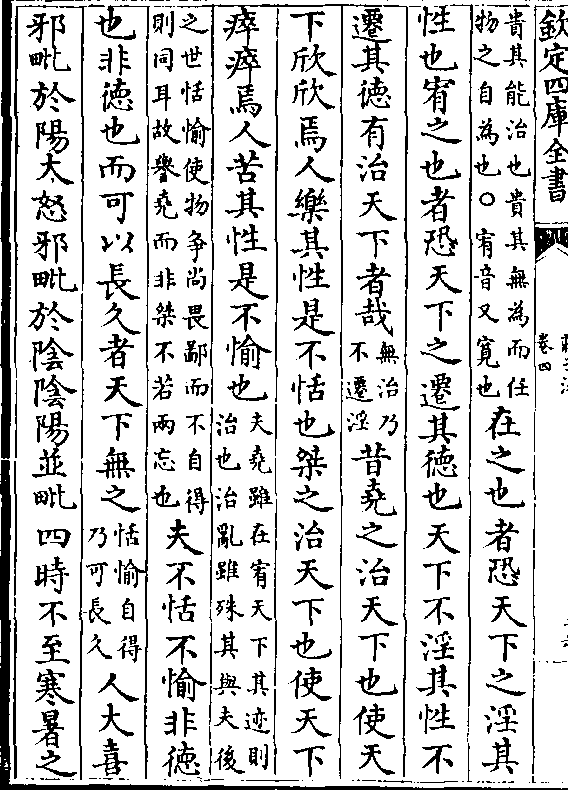 欽定四庫全書
卷四
貴其能治也貴其無為而任
物之自為也○宥音又寛也
在之也者恐天下之淫其
性也宥之也者恐天下之遷其徳也天下不淫其性不
遷其徳有治天下者哉
無治乃
不遷淫
昔堯之治天下也使天
下欣欣焉人樂其性是不恬也桀之治天下也使天下
瘁瘁焉人苦其性是不愉也
夫堯雖在宥天下其迹則
治也治亂雖殊其與夫後
之世恬愉使物爭尚畏鄙而不自得
則同耳故譽堯而非桀不若兩忘也
夫不恬不愉非徳
也非徳也而可以長久者天下無之
恬愉自得
乃可長久
人大喜
邪毗於陽大怒邪毗於陰陰陽並毗四時不至寒暑之